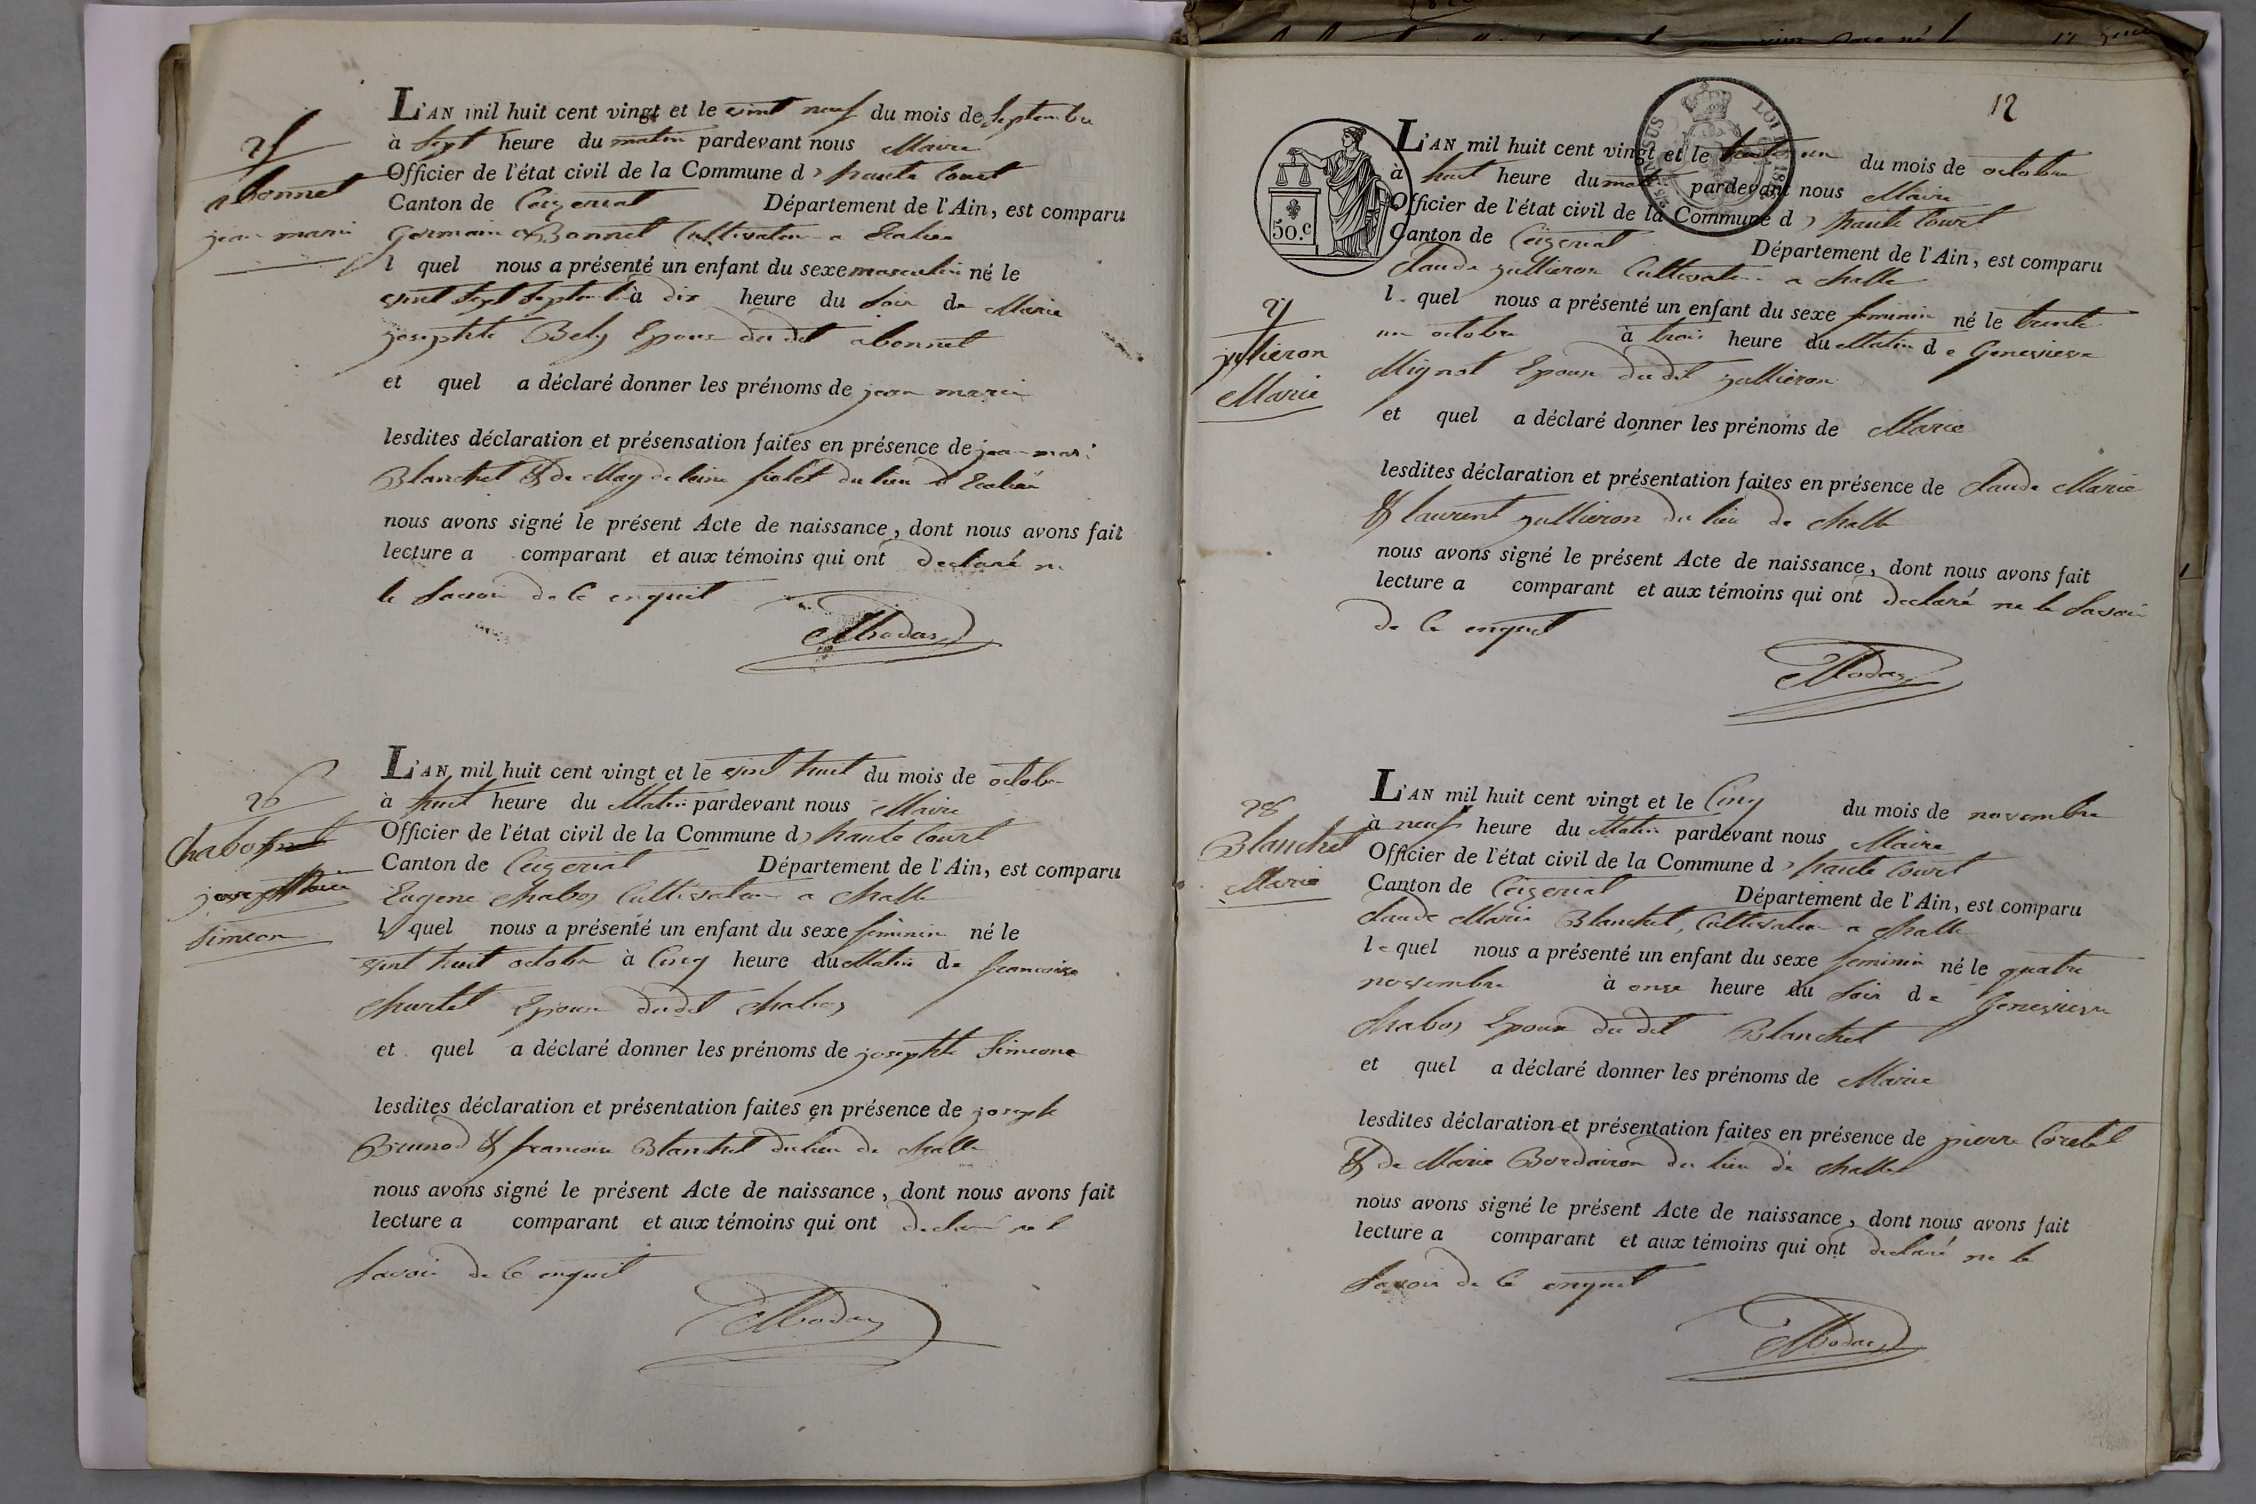 25
abonnet
jean marie
L'AN mil huit cent vingt et le vint neuf du mois de Septembre
à Sept heure du matin pardevant nous Maire
Officier de l'état civil de la Commune d haute Court
Canton de Ceizeriat Département de l'Ain, est comparu
Germain abonnet Cultivateur a
l quel nous a présenté un enfant du sexe masculin né le
vint Sept Septembre à dix heure du Soir de Marie
josephte Bely Epouse dudit abonnet
et quel a déclaré donner les prénoms de jean marie
lesdites déclaration et présensation faites en présence de jean mari
Blanchet & de Magdeleine du lieu
nous avons signé le présent Acte de naissance, dont nous avons fait
lecture a comparant et aux témoins qui ont declaré ne
le Savoir de ce enquit
26
Chabot
Simeon
L'AN mil huit cent vingt et le vint huit du mois de octobre
à huit heure du Matin pardevant nous Maire
Officier de l'état civil de la Commune d haute Court
Canton de Ceizeriat Département de l'Ain, est comparu
Eugene Chaboz Cultivateur a Challe
l quel nous a présenté un enfant du sexe feminin né le
vint huit octobre à Cinq heure du Matin de francoise
Epouse dudit Chaboz
et quel a déclaré donner les prénoms de josephte Simeone
lesdites déclaration et présentation faites en présence de joseph
Brunod & francoise Blanchet du lieu de Challe
nous avons signé le présent Acte de naissance, dont nous avons fait
lecture a comparant et aux témoins qui ont declaré ne l
Savoir de ce enquit
12
LOI
50.c
27
jullieron
Marie
L'AN mil huit cent vingt et le trente un du mois de octobre
à huit heure du matin pardevant nous Maire
Officier de l'état civil de la Commune d haute Court
Canton de Ceizeriat Département de l'Ain, est comparu
Claude jullieron Cultivateur a Challe
l quel nous a présenté un enfant du sexe feminin né le trente
un octobre à trois heure du Matin de Genevieve
Mignot Epouse dudit jullieron
et quel a déclaré donner les prénoms de Marie
lesdites déclaration et présentation faites en présence de Claude Marie
& laurent jullieron du lieu de Challe
nous avons signé le présent Acte de naissance, dont nous avons fait
lecture a comparant et aux témoins qui ont declaré ne le Savoir
de ce enquit
28
Blanchet
Marie
L'AN mil huit cent vingt et le Cinq du mois de novembre
à neuf heure du Matin pardevant nous Maire
Officier de l'état civil de la Commune d haute Court
Canton de Ceizeriat Département de l'Ain, est comparu
Claude Marie Blanchet, Cultivateur a Challe
le quel nous a présenté un enfant du sexe feminin né le quatre
novembre à onze heure du Soir de Genevieve
Chaboz Epouse dudit Blanchet
et quel a déclaré donner les prénoms de Marie
lesdites déclaration et présentation faites en présence de pierre
& de Marie du lieu de Challe
nous avons signé le présent Acte de naissance, dont nous avons fait
lecture a comparant et aux témoins qui ont declaré ne le
Savoir de ce enquit